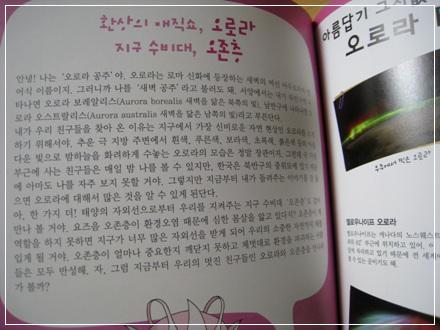 환상의 매직쇼, 오로라
지구 수비대, 오존층
안녕! 나는 '오로라 공주'야. 오로라는 로마 신화에 등장하는 새벽의 여신
어식 이름이지. 그러니까 나를 '새벽 공주'라고 불러도 돼.
타나면 오로라 보레알리스(Aurora borealis 새벽을 닮은 북쪽의 빛),
로라 오스트랄리스(Aurora australis 새벽을 닮은 남쪽의 빛)라고 부른단다.
내가 우리 친구들을 찾아 온 이유는 지구에서 가장 신비로운 자연 현상인 오로라를
하기 위해서야. 추운 극 지방 주변에서 흰색, 푸른색, 보라색, 초록색, 붉은색 등의
다운 빛으로 밤하늘을 화려하게 수놓는 오로라의 모습은 정말 장관이지.
부근에 사는 친구들은 매일 밤 나를 볼 수 있지만, 한국은 북반구의 중위도에
에 아마도 나를 자주 보지 못할 거야. 그렇지만 지금부터 내가 들려주는 이야기를
으면 오로라에 대해서 많은 것을 알 수 있게 된단다.
아, 한 가지 더! 태양의 자외선으로부터 우리를 지켜주는 지구 수비대 '오존층'도
만나 볼 거야. 요즈음 오존층이 환경오염 때문에 심한 몸살을 앓고 있다지? 오존층이
역할을 하지 못하면 지구가 너무 많은 자외선을 받게 되어 우리의 소중한 자연까지
입게 될 거야. 오존층이 얼마나 중요한지 깨닫지 못하고 제멋대로 환경을 파괴하는
들은 모두 반성해. 자, 그럼 지금부터 우리의 멋진 친구들인 오로라와 오존층을 만나러
가 볼까?
아름답기
오로라
우주에서 찍은 오로라
옐로우나이프 오로라
옐로우나이프는 캐나다의 노스웨스트
부근에 위치하고 있어,